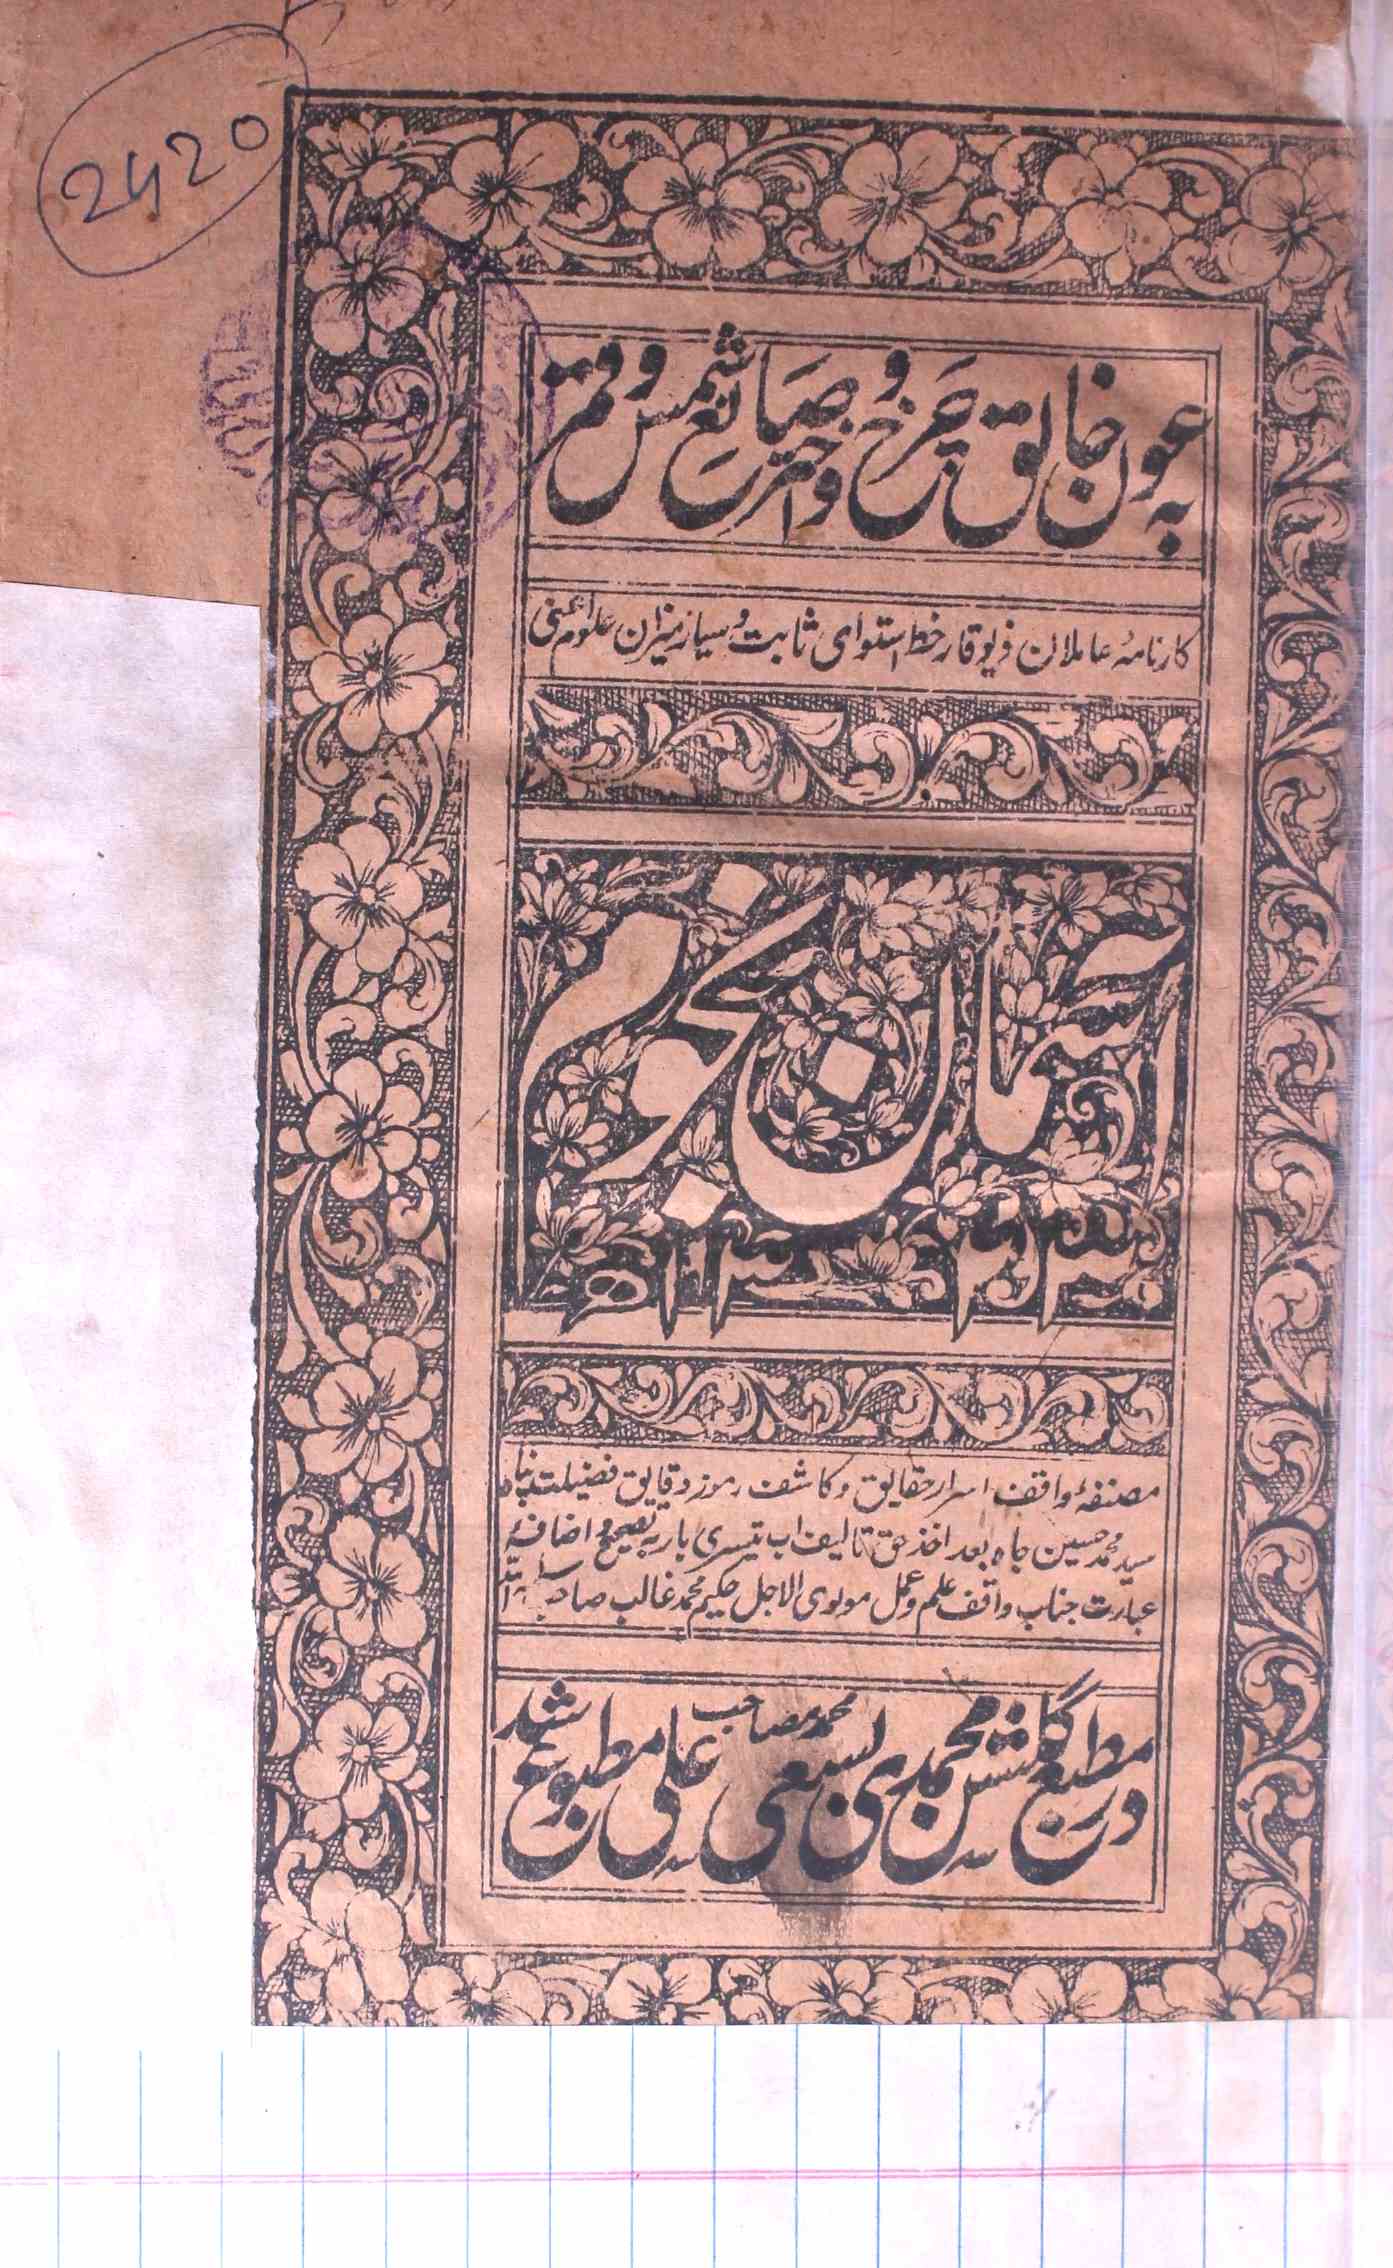 2420
بہ عون خالق چرخ و اختر و صانع شمس و قمر
کارنامۂ عاملان ذیوقار خط استوای ثابت و سیار میزان علوم یعنی
آسمان نجوم
۱۳ ھ
مصنفۂ واقف اسرار حقایق و کاشف رموز دقایق فضیلت پناہ
سید محمد حسین جاہ بعد اخذ حق تالیف اب تیسری بار بہ تصحیح و اضافۂ
عبارت جناب واقف علم و عمل مولوی الاجل حکیم محمد غالب صاحب
در مطبع گلشن محمدی بسعی محمد مصاحب علی مطبوع شد